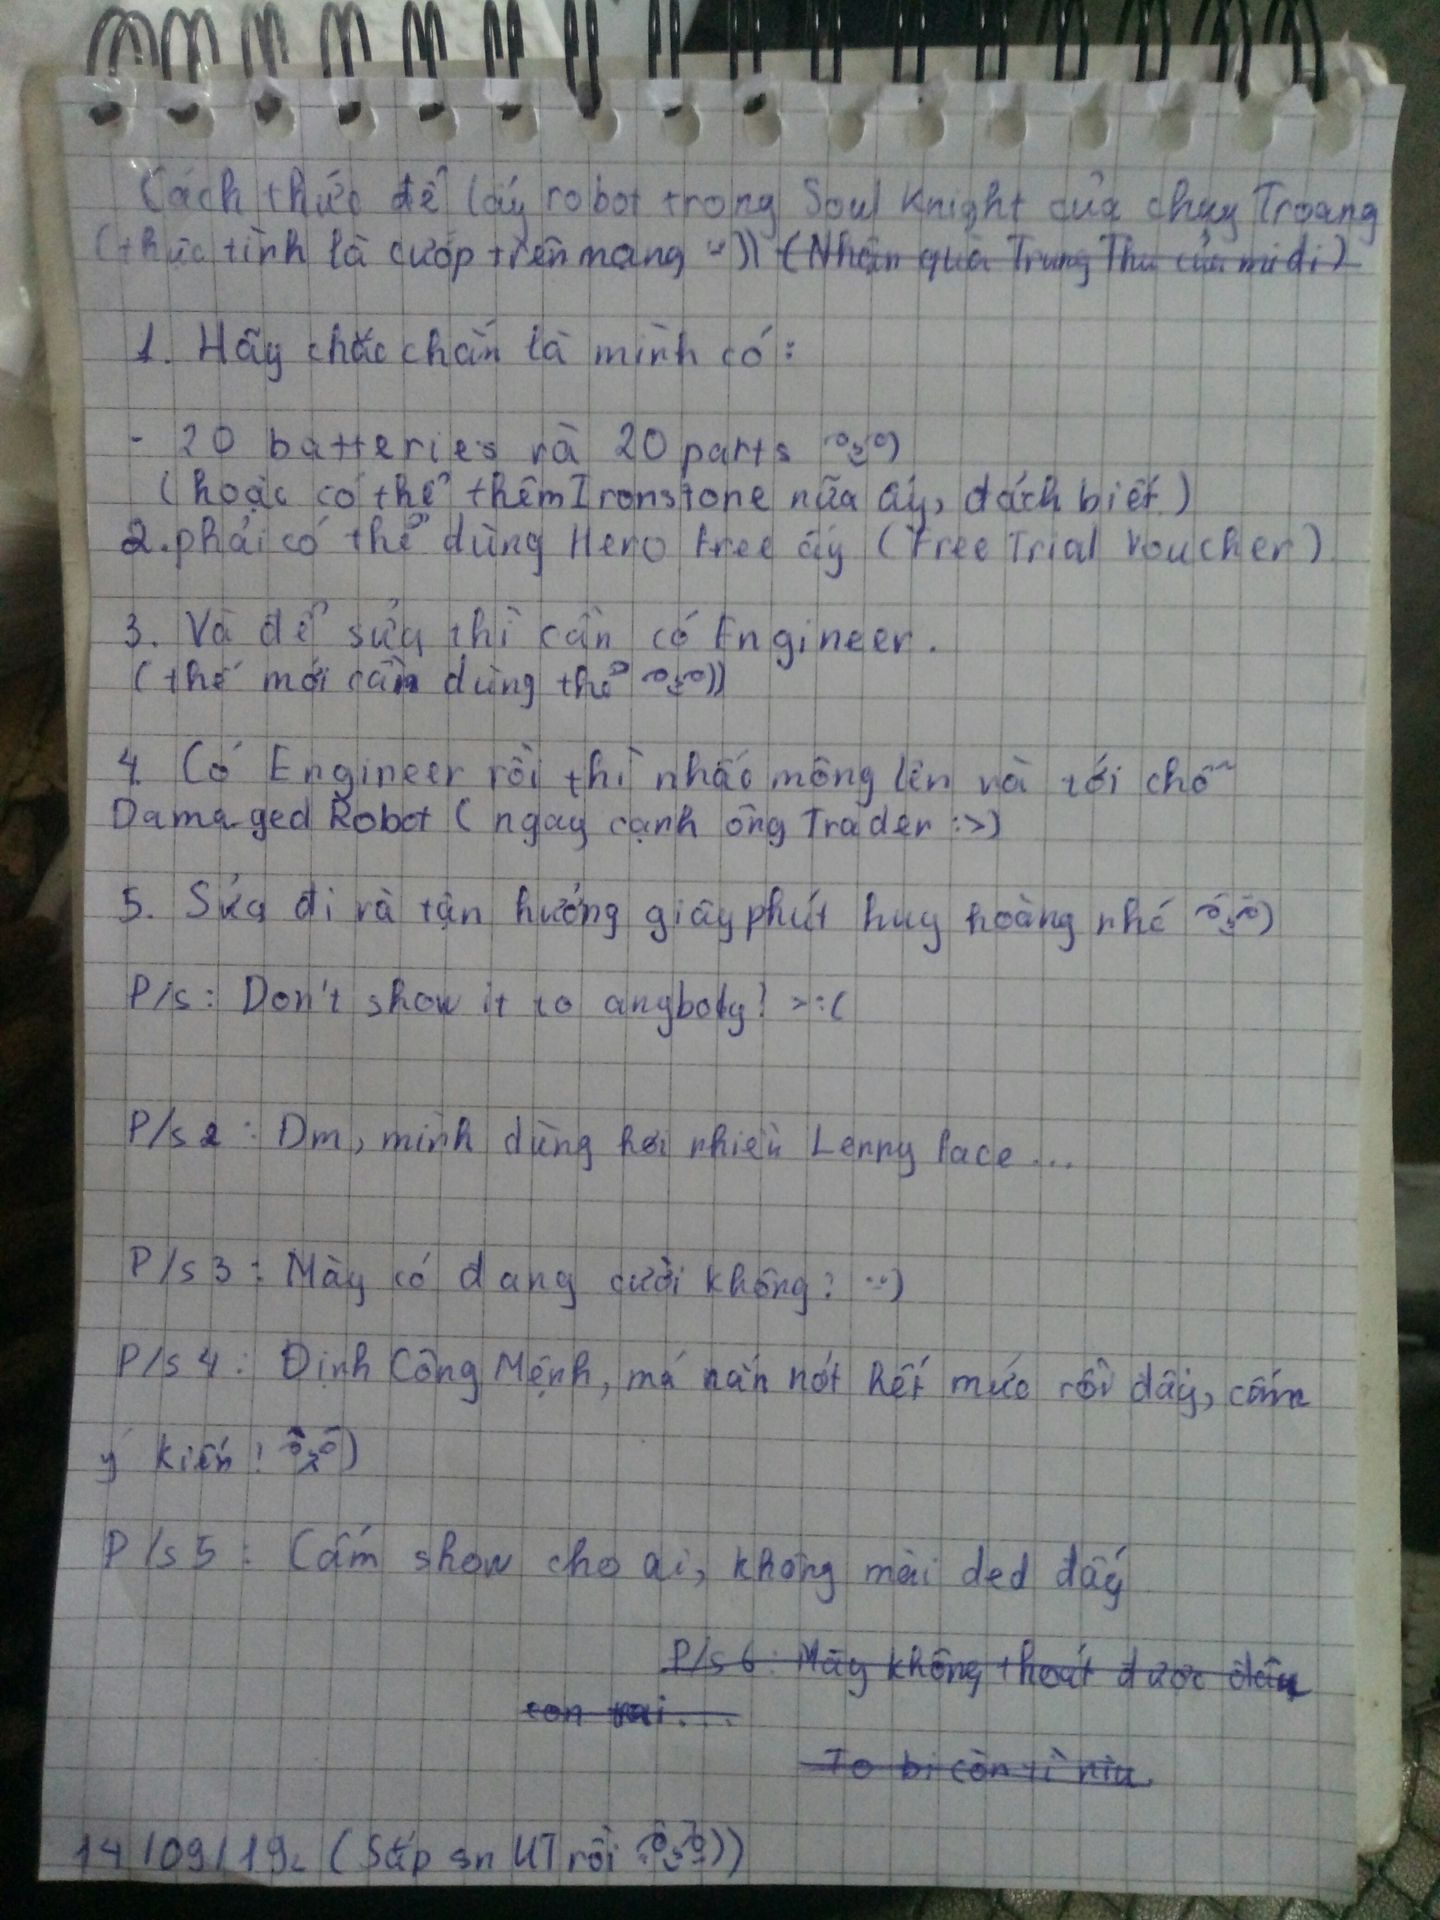 Cách thức để lấy robot trong Soul Knight của chụy Troang
(thức tình là cướp trên mạng :-)) (Nhận quà Trung Thu của mi đi)
1. Hãy chắc chắn là mình có:
- 20 batteries và 20 parts
(hoặc có thể thêm Ironstone nữa ấy, đách biết)
2. phải có thể dùng Hero free ấy (Free Trial Voucher)
3. Và để sửa thì cần có Engineer.
(thế mới cần dùng thẻ
4. Có Engineer rồi thì nhấc mông lên và tới chỗ
Damaged Robot (ngay cạnh ông Trader :>)
5. Sửa đi và tận hưởng giây phút huy hoàng nhé
P/s: Don't show it to angbody! >:(
P/s 2: Dm, mình dùng hơi nhiều Lenny face...
P/s 3: Mày có đang cười không? :-)
P/s 4: Định Công Mệnh, má nắn nót hết mức rồi đấy, cấm
ý kiến!
P/s 5: Cấm show cho ai, không mài ded đấy
P/s 6: Mày không thoát được đâu
con trai...
To bi còn tì niu
14/09/19. (Sắp sn UT rồi